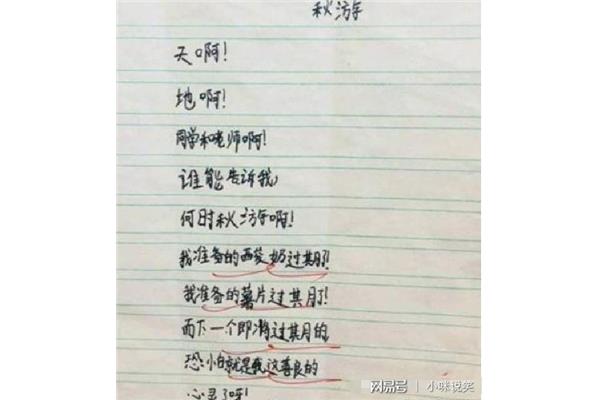 秋游
天啊!
地啊!
同学和老师啊!
谁能告诉我,
何时秋游啊!
我准备的酸奶过期了!
我准备的薯片过期了!
而下一个即将过期的,
恐怕就是我这善良的
心灵了呀!
网易号 | 小咪说笑